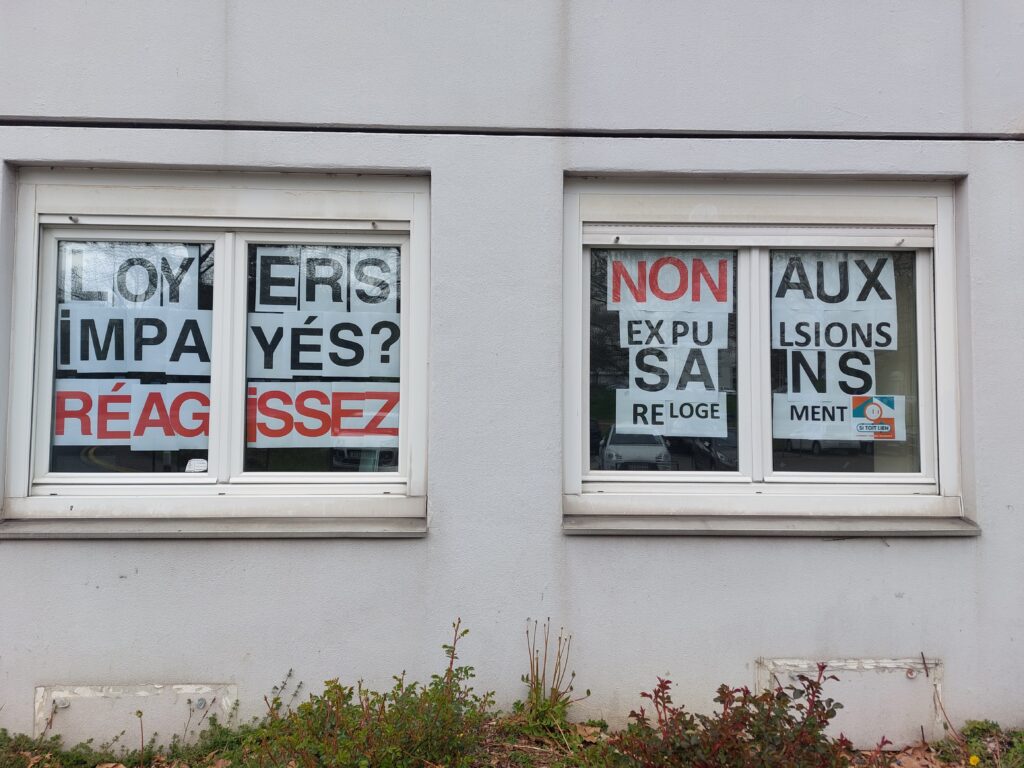 LOYERS
iMPAYÉS?
RÉAGiSSEZ
NON AUX
EXPULSIONS
SANS
RELOGEMENT
SI TOIT LIEN